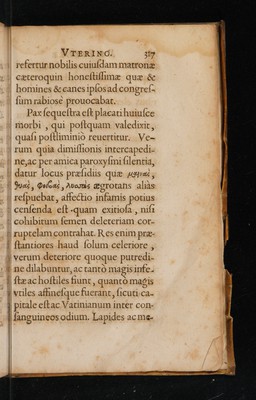 VTERINO. 317
refertur nobilis cuiusdam matronæ
cæteroquin honestissimæ quæ &
homines & canes ipsos ad congres-
sum rabiosè prouocabat.
Pax sequestra est placati huiusce
morbi, qui postquam valedixit,
quasi postliminiò reuertitur. Ve-
rum quia dimissionis intercapedi-
ne, ac per amica paroxysmi silentia,
datur locus præsidus quæ
ægrotans aliàs
respuebat, affectio infamis potius
censenda est quam exitiosa, nisi
cohibitum semen deleteriam cor-
ruptelam contrahat. Res enim præ-
stantiores haud solum celeriore,
verum deteriore quoque putredi-
ne dilabuntur, ac tantò magis infe-
stæ ac hostiles fiunt, quantò magis
vtiles affinesque fuerant, sicuti ca-
pitale est ac Vatinianum inter con-
sanguineos odium. Lapides ac me-